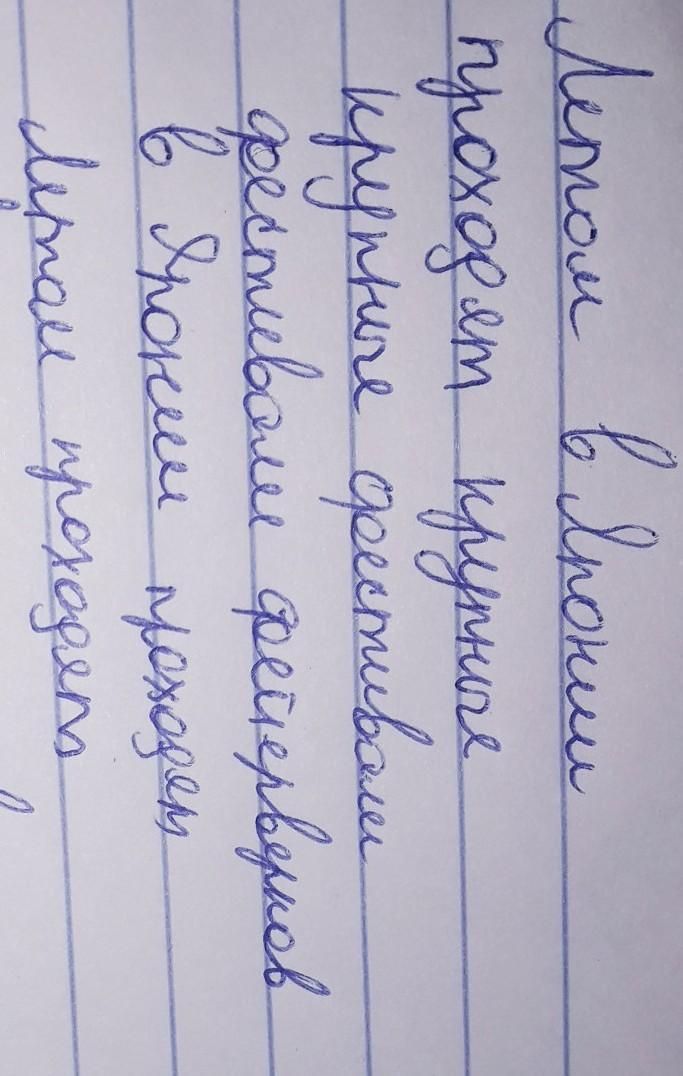 Летом в Японии
проходят крупные
крупные фестивали
фестивали фейерверков
в Японии проходят
Летом проходят